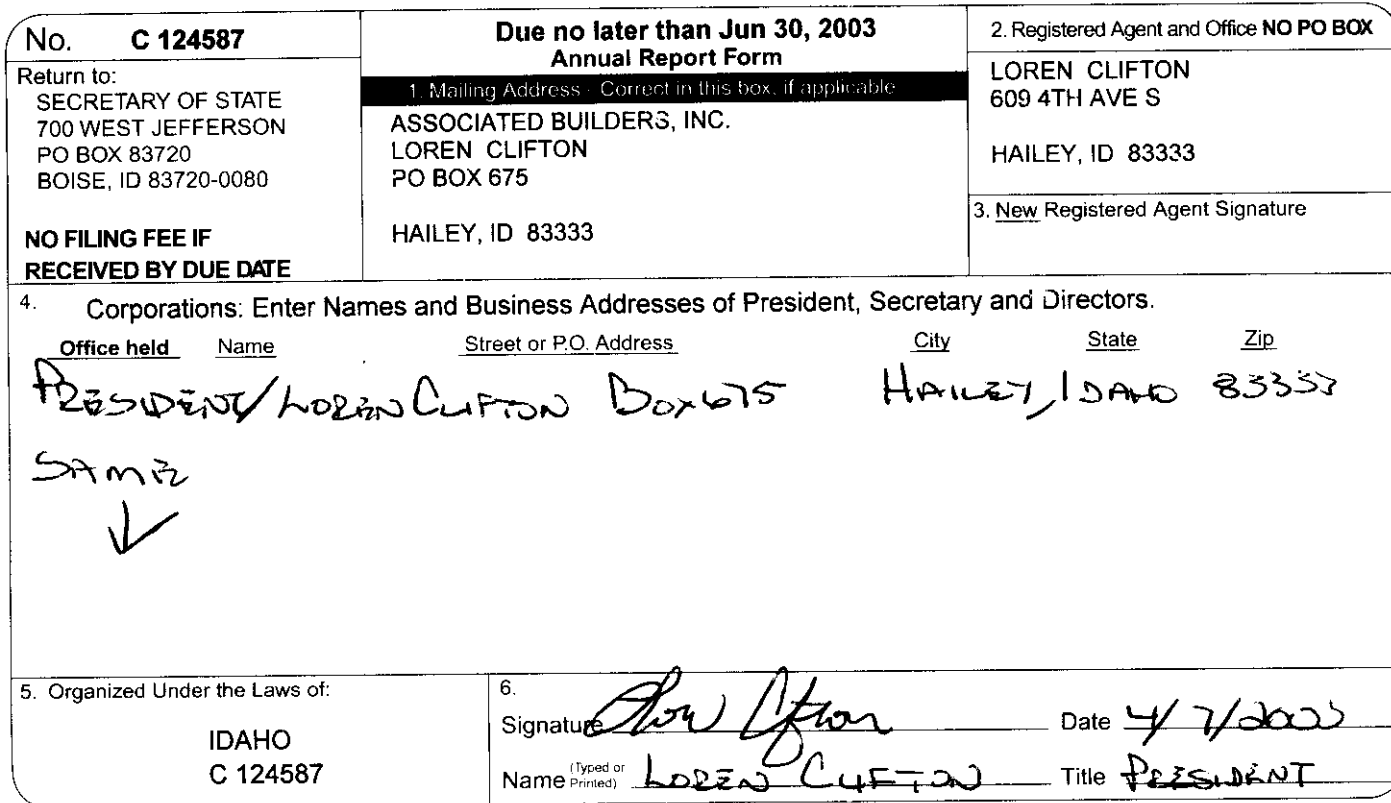 No. C 124587
Return to:
SECRETARY OF STATE
700 WEST JEFFERSON
PO BOX 83720
BOISE, ID 83720-0080
NO FILING FEE IF
RECEIVED BY DUE DATE
Due no later than Jun 30, 2003
Annual Report Form
1. Mailing Address - Correct in this box, if applicable
ASSOCIATED BUILDERS, INC.
LOREN CLIFTON
PO BOX 675
HAILEY, ID 83333
2. Registered Agent and Office NO PO BOX
LOREN CLIFTON
609 4TH AVE S
HAILEY, ID 83333
3. New Registered Agent Signature
4. Corporations: Enter Names and Business Addresses of President, Secretary and Directors.
Office held Name Street or P.O. Address City State Zip
PRESIDENT/LOREN CLIFTON BOX 675 HAILEY, IDAHO 83333
SAME
5. Organized Under the Laws of:
IDAHO
C 124587
6.
Signature Loren Clifton Date 4/7/2003
Name (Typed or Printed) LOREN CLIFTON Title PRESIDENT